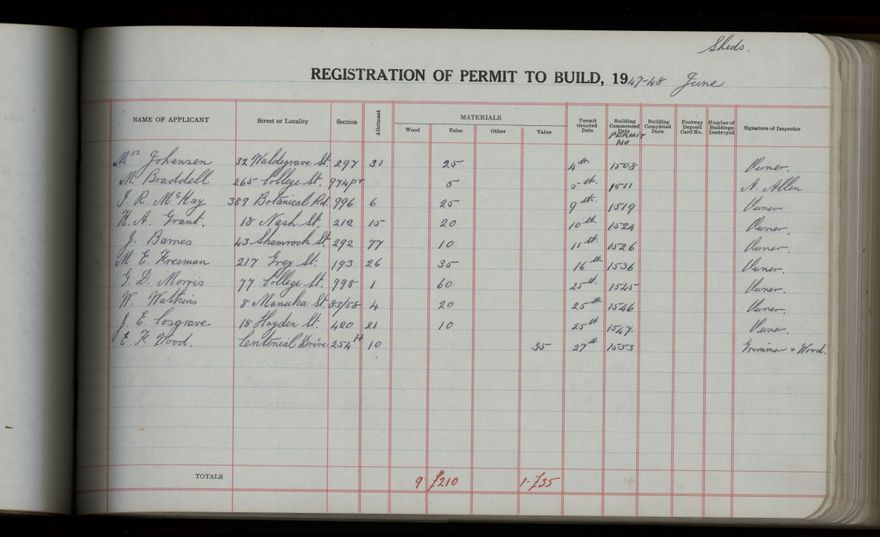 Sheds.
REGISTRATION OF PERMIT TO BUILD, 1947-48 June
NAME OF APPLICANT Street or Locality Section Allotment MATERIALS Wood Value Other Value Permit Granted Date Building Commenced Date PERMIT NO. Building Completed Date Footway Deposit Card No. Number of Buildings Destroyed Signature of Inspector
Mrs Johansen 32 Waldegrave St. 297 31 25 4th 1508 Owner.
M. Braddell 265 College St. 974pt 5 5th 1511 A. Allen
J. R. McKay 389 Botanical Rd. 996 6 25 9th 1519 Owner
N. A. Grant. 18 Nash St. 212 15 20 10th 1524 Owner.
J. Barnes 43 Shamrock St. 292 77 10 11th 1526 Owner.
M. E. Freeman 217 Grey St. 193 26 35 16th 1536 Owner.
G. D. Morris 77 College St. 998 1 60 25th 1545 Owner.
W. Watkins 8 Manuka St. 83/58 4 20 25th 1546 Owner.
J. E. Cosgrave 18 Hayden St. 420 21 10 25th 1547. Owner.
E. F. Wood. Centeneial Drive 254 10 35 27th 1553 Grimmer & Wood.
TOTALS 9 £210 1. £35